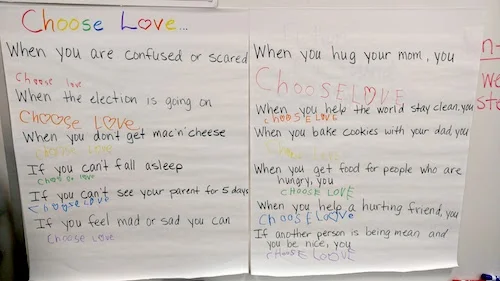 Choose Love...
When you are confused or scared
Choose love
When the election is going on
Choose Love
When you don't get mac'n'cheese
Choose Love
If you can't fall asleep
Choose love
If you can't see your parent for 5 days
choose Love
If you feel mad or sad you can
Choose Love
When you hug your mom, you
ChooSE LOVE
When you help the world stay clean, you
CHOOSE LOVE
When you bake cookies with your dad, you
Choose Love
When you get food for people who are
hungry, you
CHOOSE LOVE
When you help a hurting friend, you
CHOOSE LOVE
If another person is being mean and
you be nice, you
CHOOSE LOVE